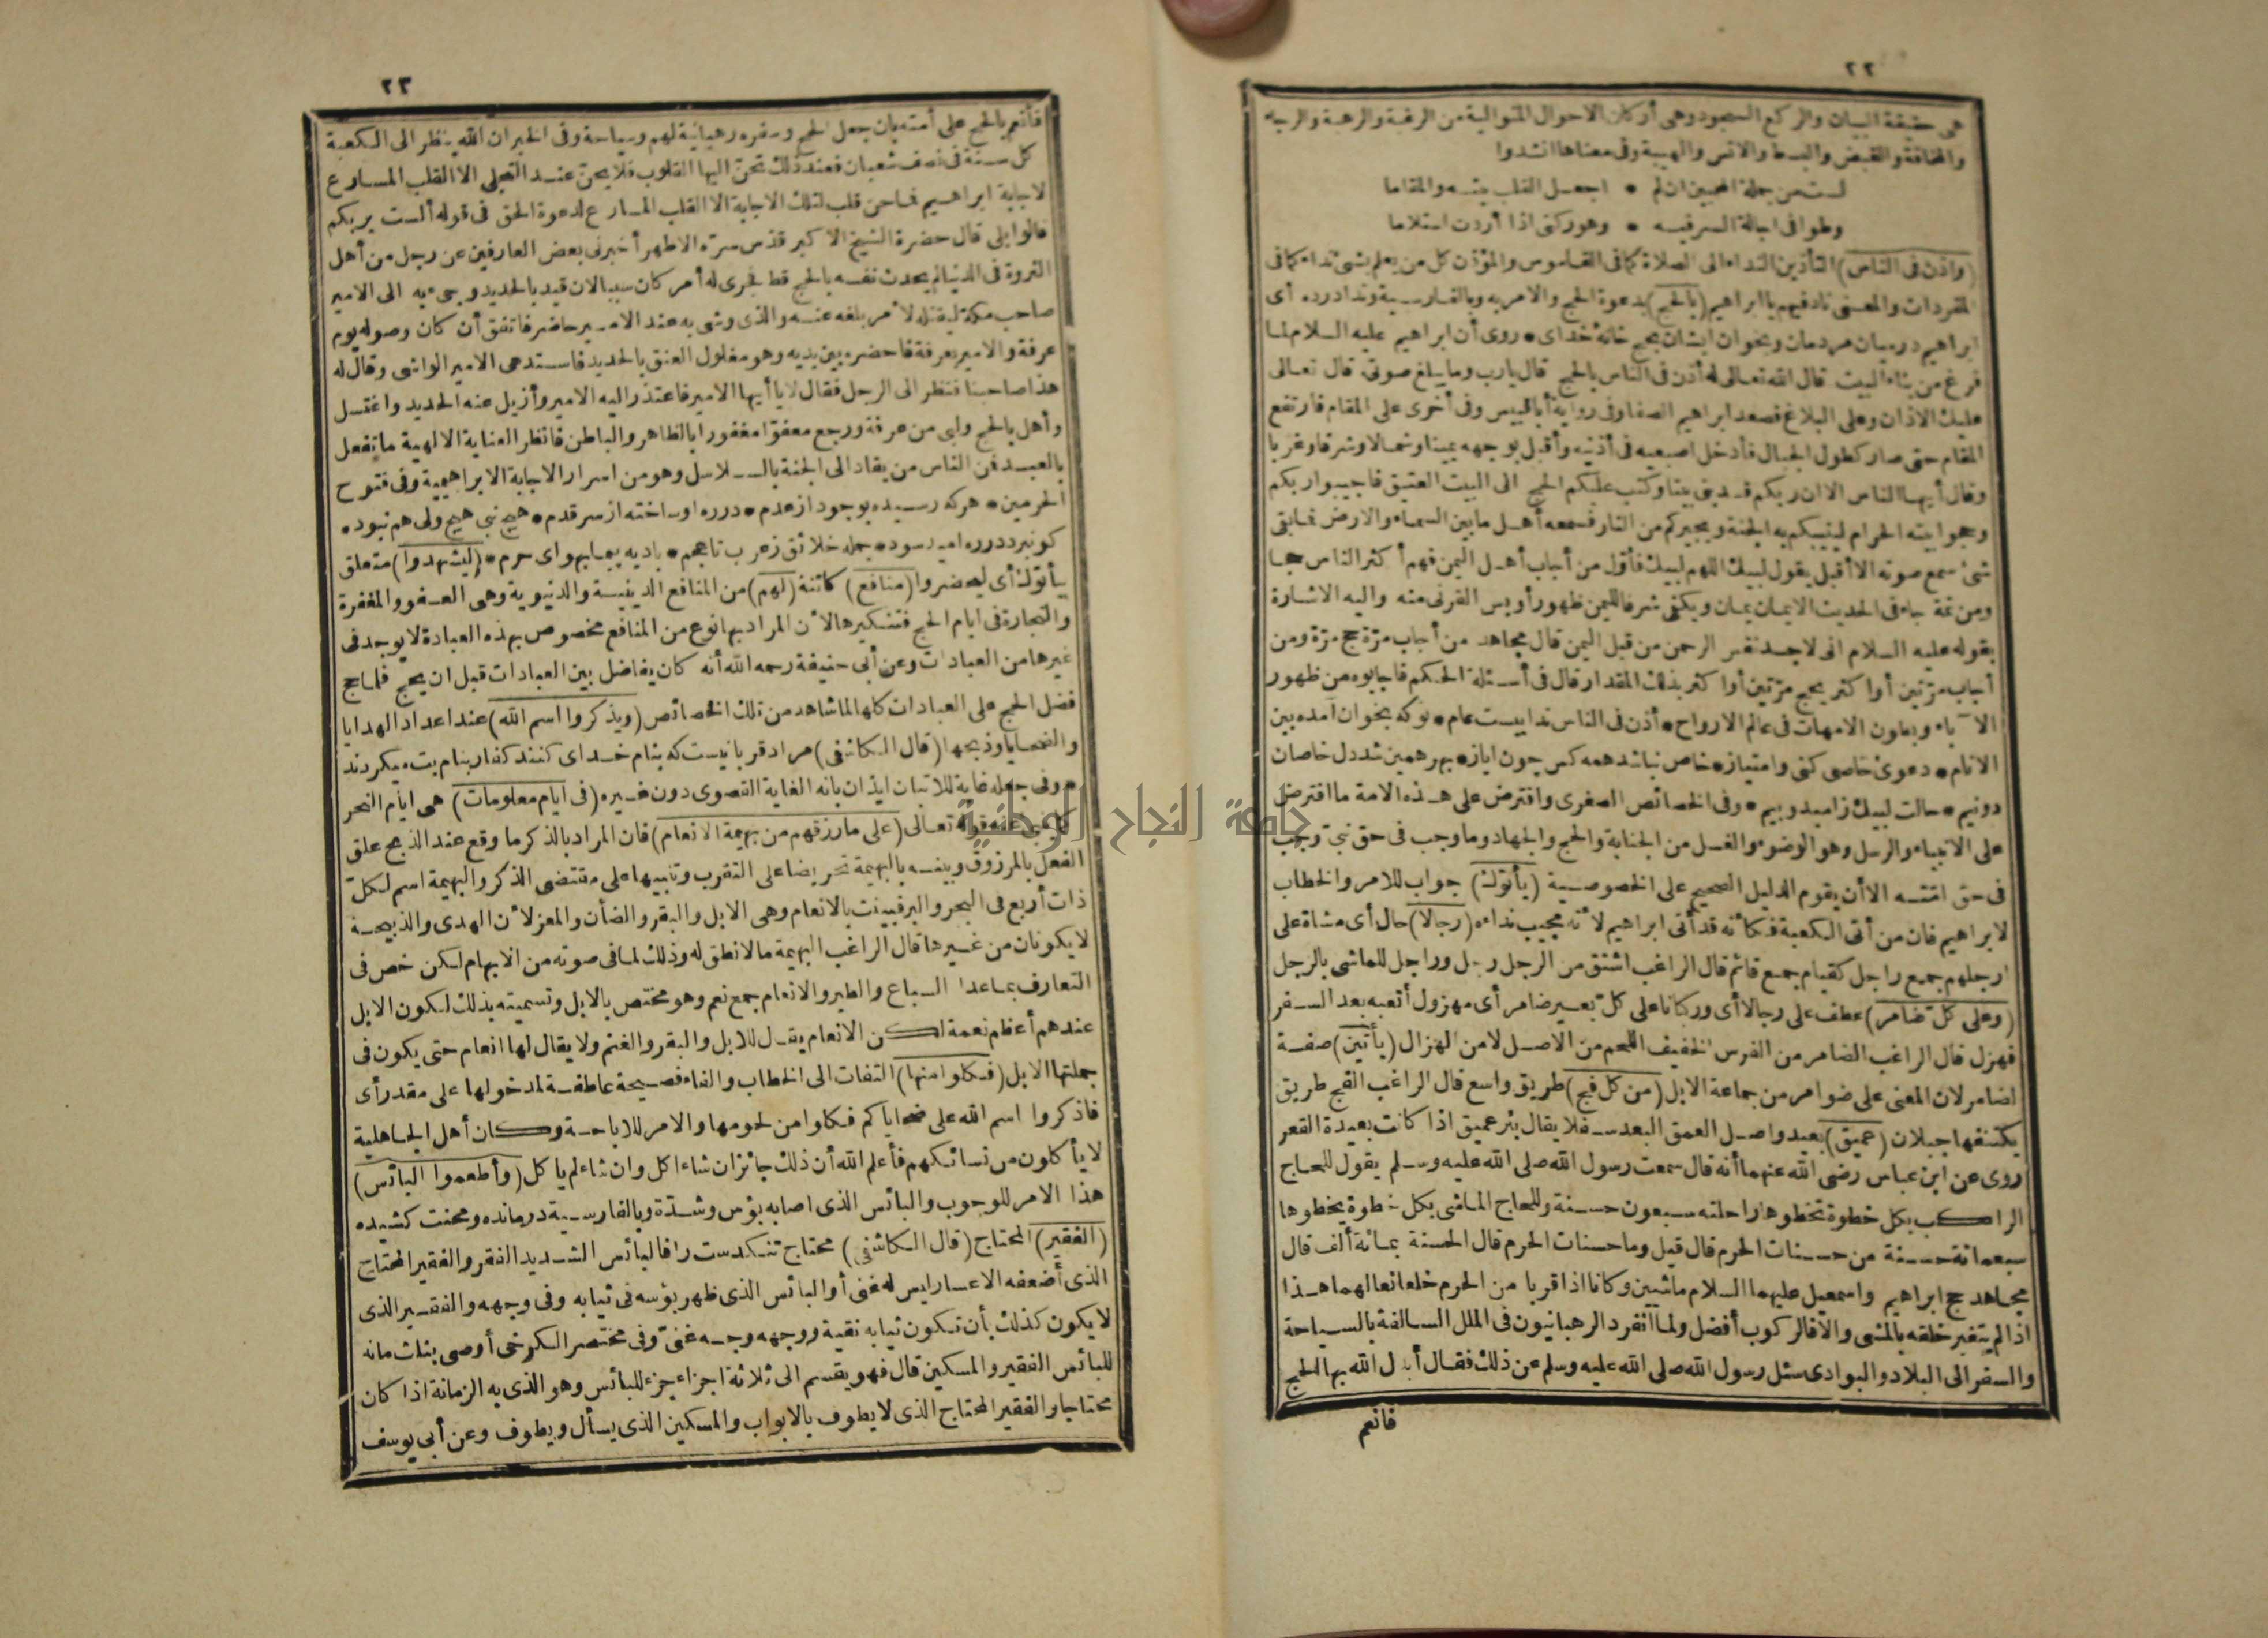 ٢٢
هى حقيقة البيان والركع السجود وهى أركان الاحوال المتوالية من الرغبة والرهبة والرجاء
والمخافة والقبض والبسط والانس والهيبة وفى معناها انشدوا
لست من جملة المحبين ان لم • اجعل القلب بيته والمقاما
وطوافى اجالة السر فيه • وهو ركنى اذا أردت استلاما
(واذن فى الناس) التأذين النداء الى الصلاة كما فى القاموس والمؤذن كل من يعلم بشئ نداء كما فى
المفردات والمعنى ناد فيهم يا ابراهيم (بالحج) بدعوة الحج والامر به وبالفارسية وندا درده أى
ابراهيم درميان مردمان وبخوان ايشان بحج خانه خداى • روى أن ابراهيم عليه السلام لما
فرغ من بناء البيت قال الله تعالى له أذن فى الناس بالحج قال يارب وما يبلغ صوتى قال تعالى
عليك الاذان وعلى البلاغ فصعد ابراهيم الصفا وفى رواية أبا قبيس وفى أخرى على المقام فارتفع
المقام حتى صار كطول الجبال فأدخل اصبعيه فى أذنيه وأقبل بوجهه يمينا وشمالا وشرقا وغربا
وقال أيها الناس الا ان ربكم قد بنى بيتا وكتب عليكم الحج الى البيت العتيق فاجيبوا ربكم
وحجوا بيته الحرام ليثيبكم به الجنة ويجيركم من النار فسمعه أهل ما بين السماء والارض فما بقى
شئ سمع صوته الا أقبل يقول لبيك اللهم لبيك فأول من أجاب أهل اليمن فهم أكثر الناس حجا
ومن ثمة جاء فى الحديث الايمان يمان ويكفى شرفا لليمن ظهور أويس القرنى منه واليه الاشارة
بقوله عليه السلام انى لاجد نفس الرحمن من قبل اليمن قال مجاهد من أجاب مرّة حج مرّة ومن
أجاب مرّتين أو اكثر يحج مرّتين أو اكثر بذلك المقدار قال فى أسئلة الحكم فاجابوه من ظهور
الآباء وبطون الامهات فى عالم الارواح • أذن فى الناس نداييست عام • توكه بخوان آمده بين
الانام • دعوئ خاصى كنى وامتياز • خاص نباشد همه كس چون اياز • بهر همين شد دل خاصان
دونيم • حالت لبيك زاميد وبيم • وفى الخصائص الصغرى وافترض على هذه الامة ما افترض
على الانبياء والرسل وهو الوضوء والغسل من الجنابة والحج والجهاد وما وجب فى حق نبي وجب
فى حق امّته الا أن يقوم الدليل الصحيح على الخصوصية (يأتوك) جواب للامر والخطاب
لابراهيم فان من أتى الكعبة فكأنه قد أتى ابراهيم لانه مجيب نداءه (رجالا) حال أى مشاة على
ارجلهم جمع راجل كقيام جمع قائم قال الراغب اشتق من الرجل رجل وراجل للماشى بالرجل
(وعلى كل ضامر) عطف على رجالا أى وركبانا على كل بعير ضامر أى مهزول أتعبه بعد السفر
فهزل قال الراغب الضامر من الفرس الخفيف اللحم من الاصل لا من الهزال (يأتين) صفة
لضامر لان المعنى على ضوامر من جماعة الابل (من كل فج) طريق واسع قال الراغب الفج طريق
يكتنفها جبلان (عميق) بعيد واصل العمق البعد سفلا يقال بئر عميق اذا كانت بعيدة القعر
روى عن ابن عباس رضى الله عنهما أنه قال سمعت رسول الله صلى الله عليه وسلم يقول للحاج
الراكب بكل خطوة تخطوها راحلته سبعون حسنة وللحاج الماشى بكل خطوة يخطوها
سبعمائة حسنة من حسنات الحرم قال قيل وما حسنات الحرم قال الحسنة بمائة ألف قال
مجاهد حج ابراهيم واسمعيل عليهما السلام ماشيين وكانا اذا قربا من الحرم خلعا نعالهما هذا
اذا لم يتغير خلقه بالمشى والا فالركوب أفضل ولما انفرد الرهبانيون فى الملل السالفة بالسياحة
والسفر الى البلاد والبوادى سئل رسول الله صلى الله عليه وسلم عن ذلك فقال أبدل الله بها الحج
فانعم
٢٣
فأنعم بالحج على أمته بان جعل الحج وسفره رهبانية لهم وسياحة وفى الخبر ان الله ينظر الى الكعبة
كل سنة فى نصف شعبان فعند ذلك تحنّ اليها القلوب فلا يحنّ عند التجلى الا القلب المسارع
لاجابة ابراهيم فما حن قلب لتلك الاجابة الا القلب المسارع لدعوة الحق فى قوله ألست بربكم
قالوا بلى قال حضرة الشيخ الاكبر قدّس سرّه الاطهر أخبرنى بعض العارفين عن رجل من أهل
الثروة فى الدنيا لم يحدث نفسه بالحج قط فجرى له أمر كان سببا لان قيد بالحديد وجىء به الى الامير
صاحب مكة ليقتله لامر بلغه عنه والذى وشى به عند الامير حاضر فاتفق أن كان وصوله يوم
عرفة والامير بعرفة فاحضره بين يديه وهو مغلول العنق بالحديد فاستدعى الامير الواشى وقال له
هذا صاحبنا فنظر الى الرجل فقال لا يا أيها الامير فاعتذر اليه الامير وأزيل عنه الحديد واغتسل
وأهل بالحج ولبى من عرفة ورجع معفوّا مغفورا بالظاهر والباطن فانظر العناية الالهية ما تفعل
بالعبد فمن الناس من يقاد الى الجنة بالسلاسل وهو من اسرار الاجابة الابراهيمية وفى فتوح
الحرمين • هركه رسيده بوجود از عدم • درره او ساخته از سر قدم • هيچ نبى هيچ ولى هم نبود •
كونبرد درره اميد سود • جمله خلائق زعرب تا عجم • باديه پيماى هواى حرم • (ليشهدوا) متعلق
بيأتوك أى ليحضروا (منافع) كائنة (لهم) من المنافع الدينية والدنيوية وهى العفو والمغفرة
والتجارة فى ايام الحج فتنكيرها لان المراد بها نوع من المنافع مخصوص بهذه العبادة لا يوجد فى
غيرها من العبادات وعن أبى حنيفة رحمه الله أنه كان يفاضل بين العبادات قبل ان يحج فلما حج
فضل الحج على العبادات كلها لما شاهد من تلك الخصائص (ويذكروا اسم الله) عند اعداد الهدايا
والضحايا وذبحها (قال الكاشفى) مراد قربانيست كه بنام خداى كنند كفار بنام بت ميكردند
• وفى جعله غاية للاتيان ايذان بانه الغاية القصوى دون غيره (فى ايام معلومات) هى ايام النحر
كما ينبى عنه قوله تعالى (على ما رزقهم من بهيمة الانعام) فان المراد بالذكر ما وقع عند الذبح علق
الفعل بالمرزوق وبينه بالبهيمة تحريضا على التقرب وتنبيها على مقتضى الذكر والبهيمة اسم لكل
ذات أربع فى البحر والبر فبينت بالانعام وهى الابل والبقر والضأن والمعز لان الهدى والذبيحة
لا يكونان من غيرها قال الراغب البهيمة مالا نطق له وذلك لما فى صوته من الابهام لكن خص فى
التعارف بما عدا السباع والطير والانعام جمع نعم وهو مختص بالابل وتسميته بذلك لكون الابل
عندهم أعظم نعمة لكن الانعام يقال للابل والبقر والغنم ولا يقال لها انعام حتى يكون فى
جملتها الابل (فكلوا منها) التفات الى الخطاب والفاء فصيحة عاطفة لمدخولها على مقدر أى
فاذكروا اسم الله على ضحاياكم فكلوا من لحومها والامر للاباحة وكان أهل الجاهلية
لا يأكلون من نسائكهم فأعلم الله أن ذلك جائز ان شاء اكل وان شاء لم ياكل (وأطعموا البائس)
هذا الامر للوجوب والبائس الذى اصابه بؤس وشدّة وبالفارسية درمانده ومحنت كشيده
(الفقير) المحتاج (قال الكاشفى) محتاج تنكدست را فالبائس الشديد الفقر والفقير المحتاج
الذى أضعفه الاعسار ليس له غنى أو البائس الذى ظهر بؤسه فى ثيابه وفى وجهه والفقير الذى
لا يكون كذلك بأن تكون ثيابه نقية ووجهه وجه غنىّ وفى مختصر الكرخى أوصى بثلث ماله
للبائس الفقير والمسكين قال فهو يقسم الى ثلاثة اجزاء جزء للبائس وهو الذى به الزمانة اذا كان
محتاجا والفقير المحتاج الذى لا يطوف بالابواب والمسكين الذى يسأل ويطوف وعن أبى يوسف
جامعة النجاح الوطنية